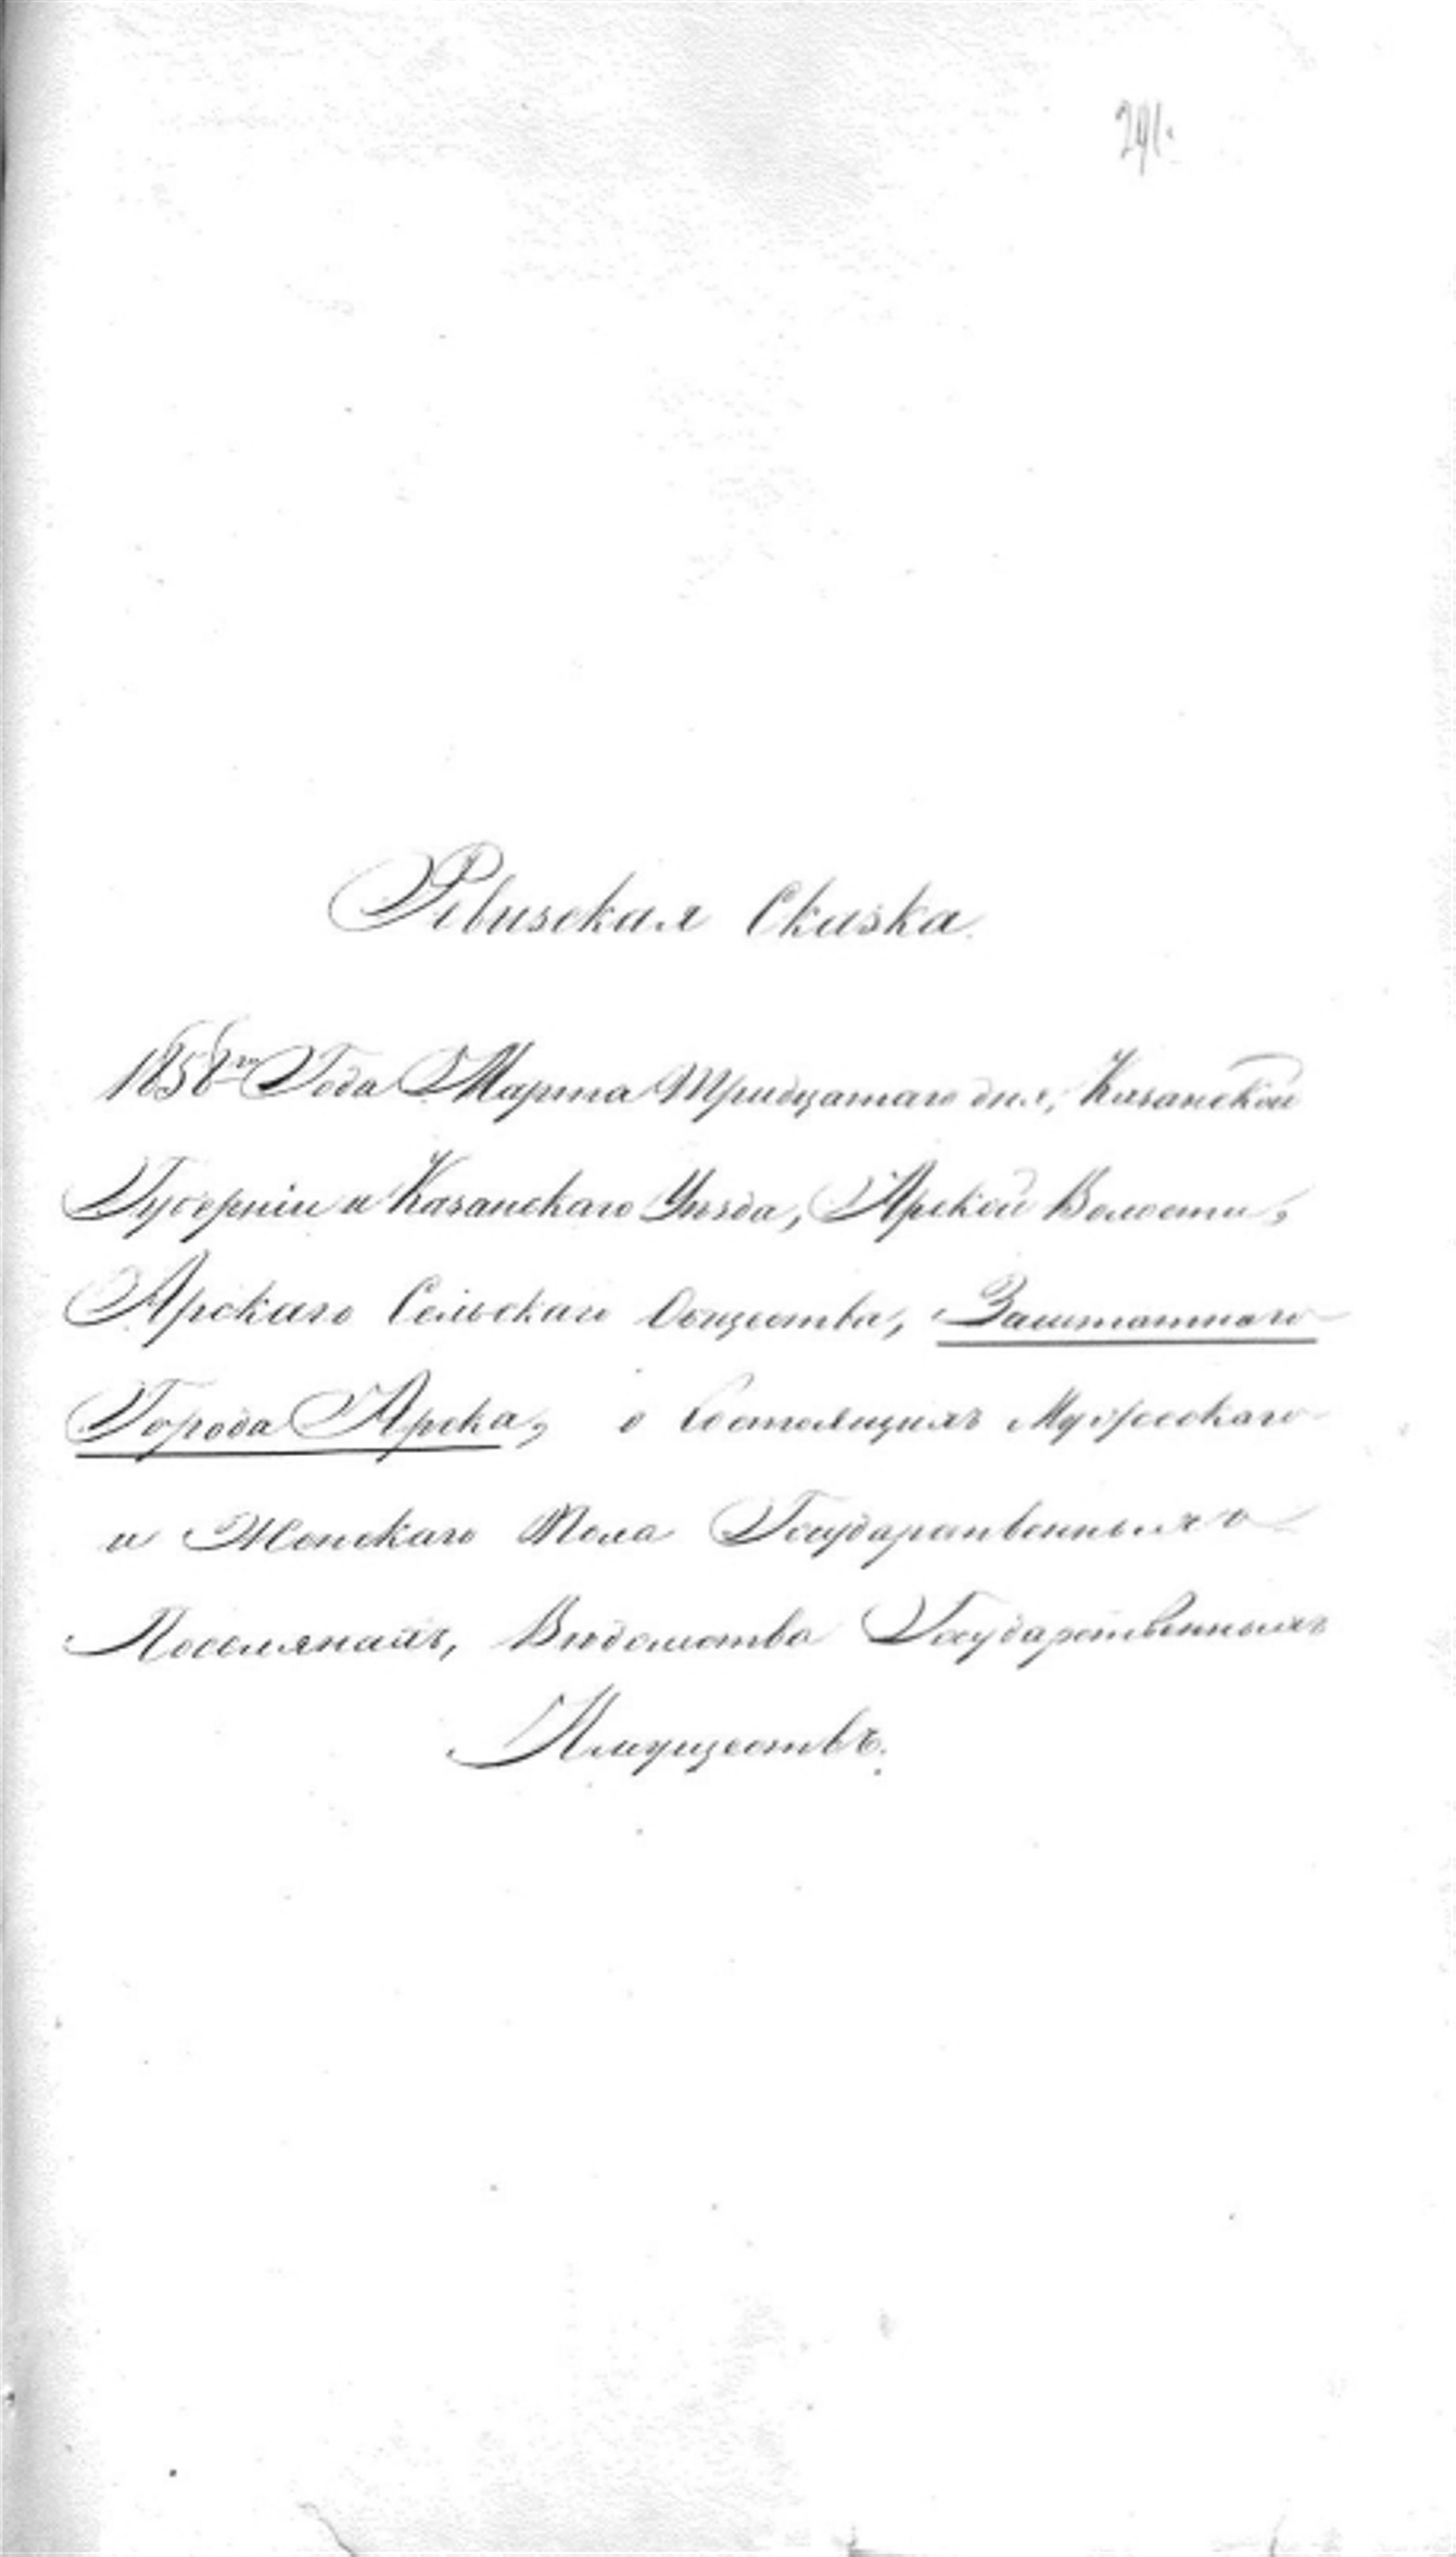 291.
Ревизская Сказка.
1858го Года Марта Тридцатаго дня, Казанской
Губерніи и Казанскаго Уѣзда, Арской Волости,
Арскаго Сельскаго Общества, Заштатнаго
Города Арска, о Состоящихъ Мужескаго
и Женскаго Пола Государственныхъ
Поселянахъ, Вѣдомства Государственныхъ
Имуществъ.